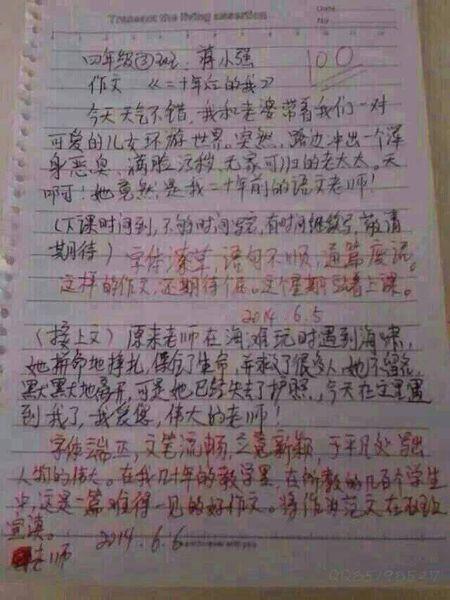 Treasure the living assertion
Date
No
四年级③班:蒋小强
100
作文 《二十年后的我》
今天天气不错,我和老婆带着我们一对
可爱的儿女环游世界。突然,路边冲出一个浑
身恶臭、满脸污秽、无家可归的老太太。天
啊可!她竟然是我二十年前的语文老师!
(下课时间到,不够时间写完,有时间继续写,敬请
期待)
字体潦草,语句不顺,通篇废话。
这样的作文,还期待个屁。这个星期站着上课。
2014.6.5
(接上文)原来老师在海滩玩时遇到海啸,
她拼命地挣扎,保住了生命,并救了很多人,她不留名,
默默地离开,可是她已经失去了护照,今天在这里遇
到我了,我爱您,伟大的老师!
字体端正,文笔流畅,立意新颖,于平凡处写出
人物的伟大。在我几十年的教学里,在所教的几百个学生
中,这是一篇难得一见的好作文。将作为范文在各班
宣读。
老师
2014.6.6